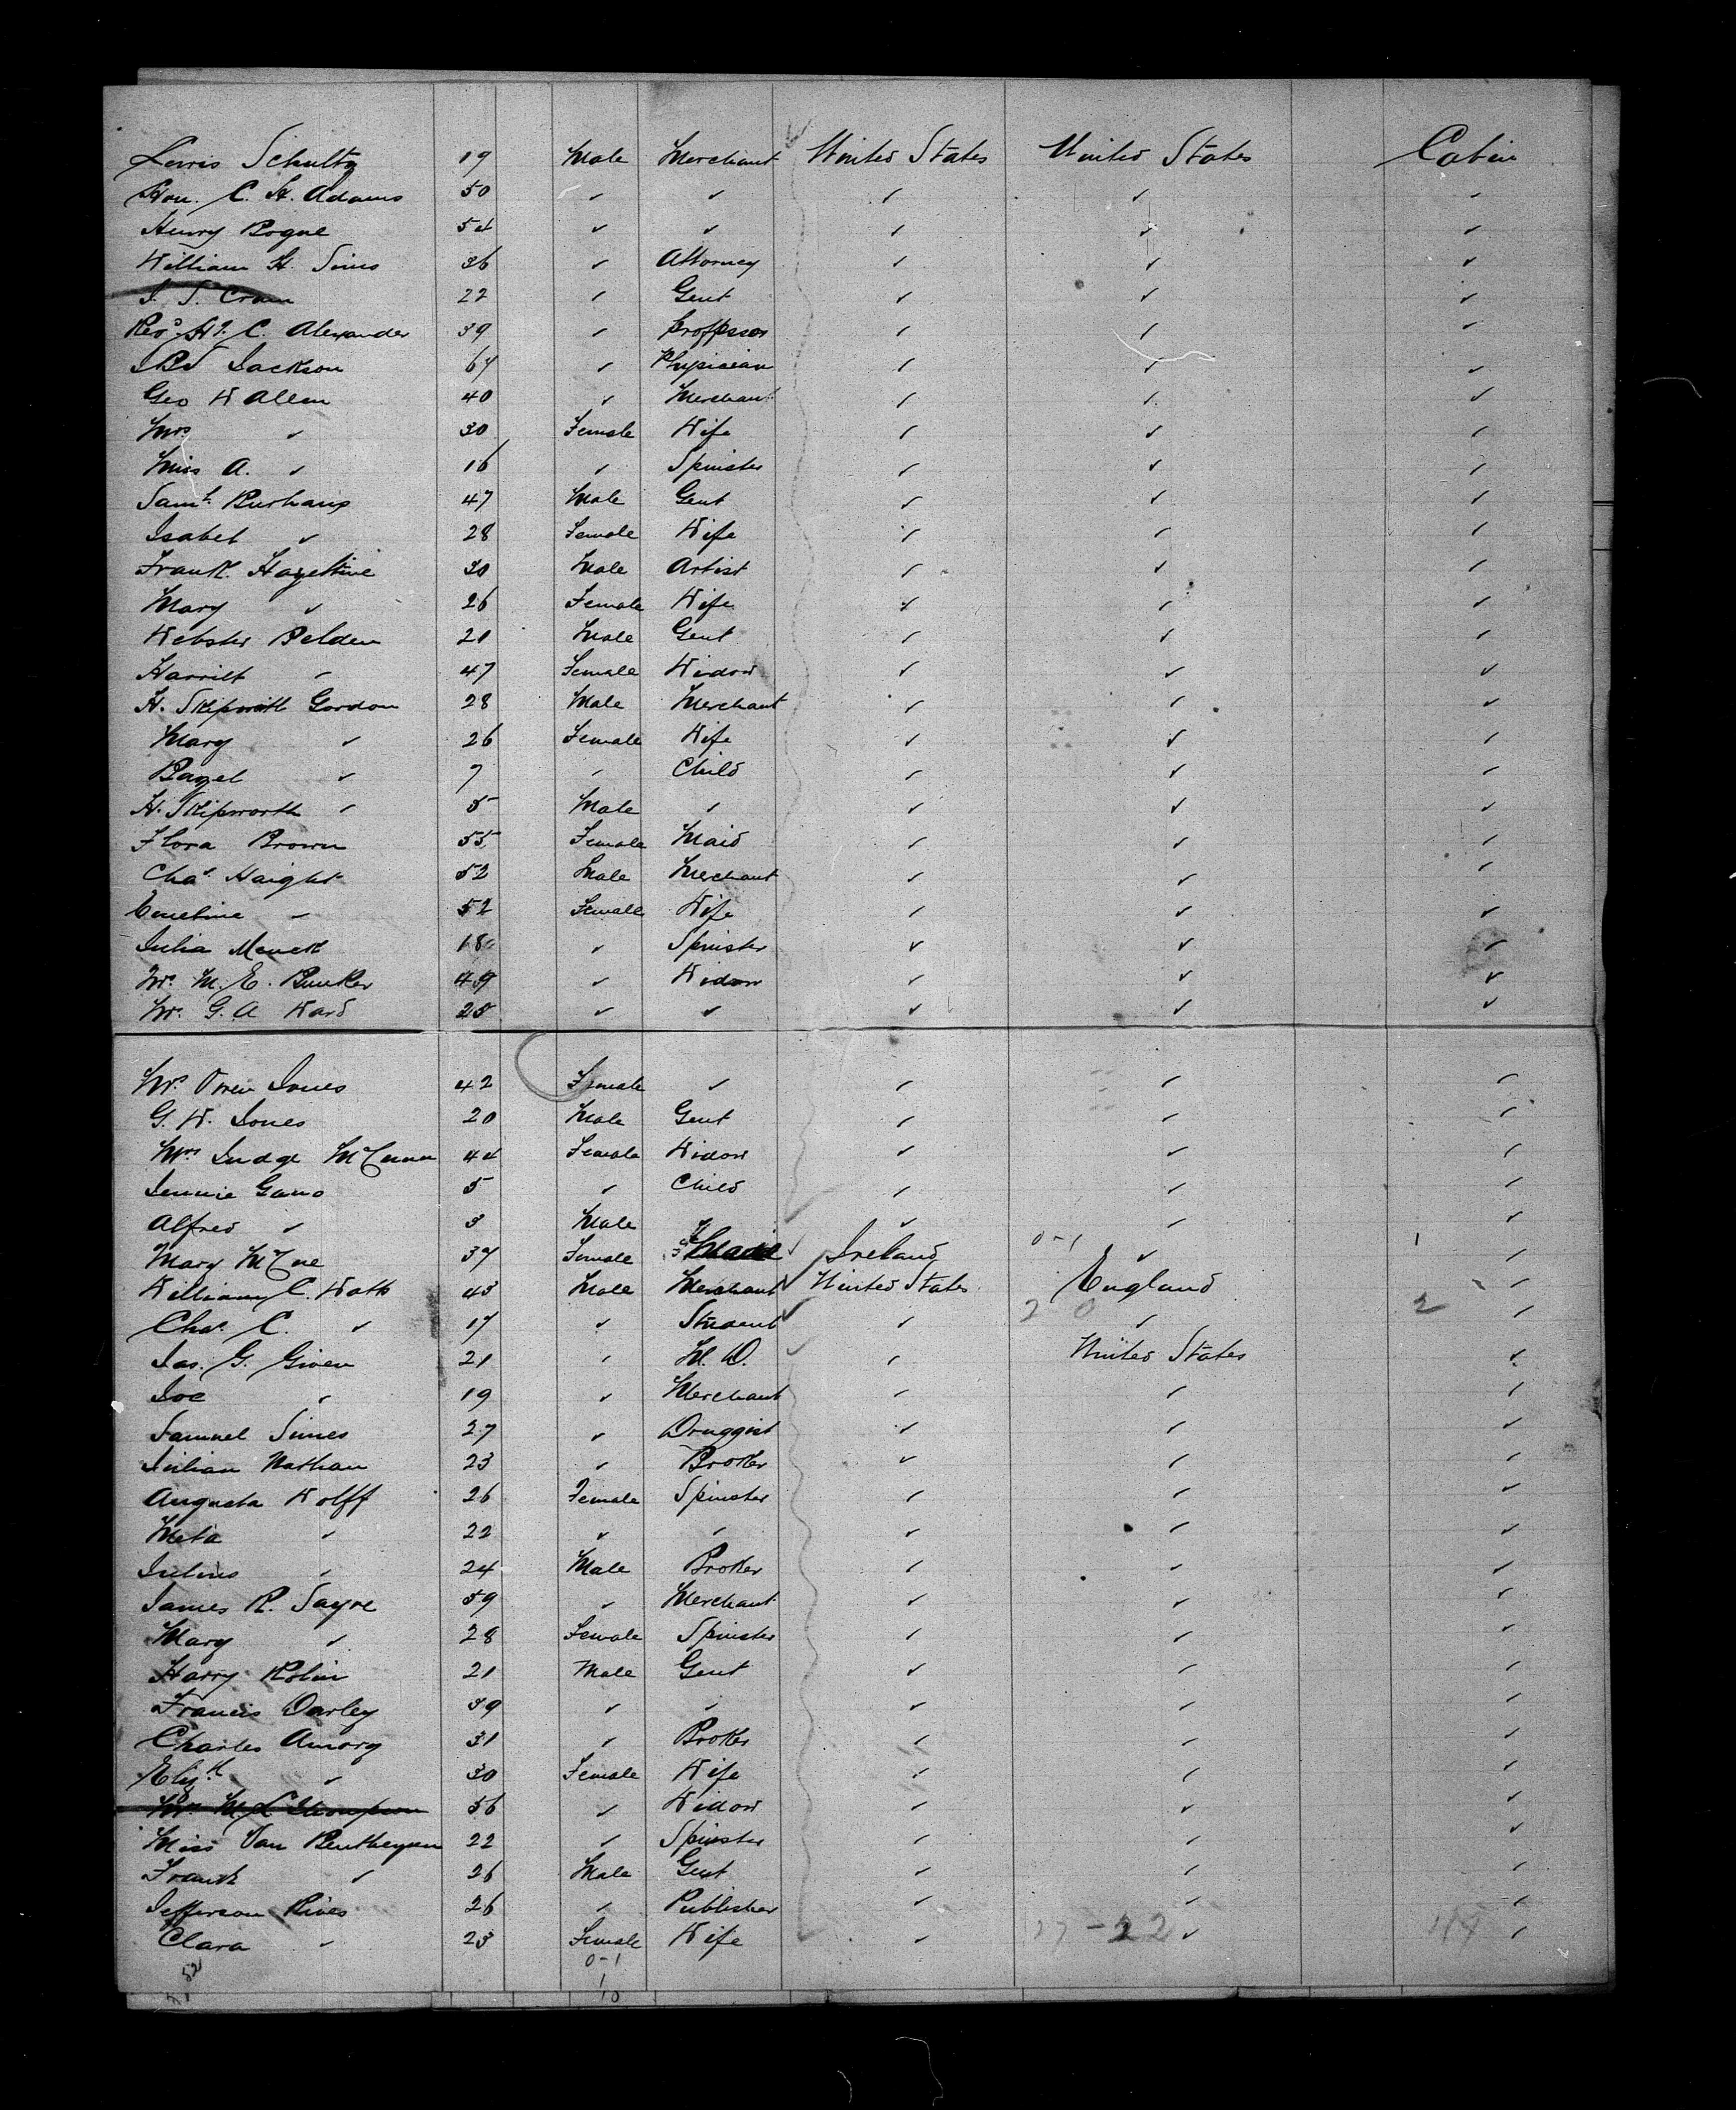 Lewis Schultz 19 Male Merchant United States United States Cabin
Hon. C. H. Adams 50 ✓ ✓ ✓ ✓ ✓
Henry Bogue 54 ✓ ✓ ✓ ✓ ✓
William H. Sims 36 ✓ Attorney ✓ ✓ ✓
J. S. Cram 22 ✓ Gent ✓ ✓ ✓
Revd H. C. Alexander 39 ✓ Professor ✓ ✓ ✓
Jackson 64 ✓ Physician ✓ ✓ ✓
Geo W Allen 40 ✓ Merchant ✓ ✓ ✓
Mrs ✓ 30 Female Wife ✓ ✓ ✓
Miss A. ✓ 16 ✓ Spinster ✓ ✓ ✓
Saml. Burhans 47 Male Gent ✓ ✓ ✓
Isabel ✓ 28 Female Wife ✓ ✓ ✓
Frank. Hazeltine 30 Male Artist ✓ ✓ ✓
Mary ✓ 26 Female Wife ✓ ✓ ✓
Webster Belden 21 Male Gent ✓ ✓ ✓
Harriet ✓ 47 Female Widow ✓ ✓ ✓
H. Skipwith Gordon 28 Male Merchant ✓ ✓ ✓
Mary ✓ 26 Female Wife ✓ ✓ ✓
✓ 7 ✓ Child ✓ ✓ ✓
H. Skipworth ✓ 5 Male ✓ ✓ ✓ ✓
Flora Brown 55 Female Maid ✓ ✓ ✓
Chas Haight 52 Male Merchant ✓ ✓ ✓
Emeline ✓ 52 Female Wife ✓ ✓ ✓
Julia 18 ✓ Spinster ✓ ✓ ✓
Mrs. M. E. Bunker 49 ✓ Widow ✓ ✓ ✓
Mrs. G. A Ward 25 ✓ ✓ ✓ ✓ ✓
Mrs. Owen Jones 42 Female ✓ ✓ ✓ ✓
G. W. Jones 20 Male Gent ✓ ✓ ✓
Mrs Judge McCunn 44 Female Widow ✓ ✓ ✓
Jennie Gano 5 ✓ Child ✓ ✓ ✓
Alfred ✓ 3 Male ✓ ✓ ✓ ✓
Mary 37 Female Maid Ireland 0-1 ✓ 1 ✓
William C. Watts 43 Male Merchant United States England ✓
Chas. C. ✓ 17 ✓ Student ✓ 2 0 ✓ 2 ✓
Jas. G. Given 21 ✓ M. D. ✓ United States ✓
Joe ✓ 19 ✓ Merchant ✓ ✓ ✓
Samuel Simes 27 ✓ Druggist ✓ ✓ ✓
Julian Nathan 23 ✓ Broker ✓ ✓ ✓
Augusta Wolff 26 Female Spinster ✓ ✓ ✓
Meta ✓ 22 ✓ ✓ ✓ ✓ ✓
Julius ✓ 24 Male Broker ✓ ✓ ✓
James R. Sayre 59 ✓ Merchant ✓ ✓ ✓
Mary ✓ 28 Female Spinster ✓ ✓ ✓
Harry Rolin 21 Male Gent ✓ ✓ ✓
Francis Darley 39 ✓ ✓ ✓ ✓ ✓
Charles Amory 31 ✓ Broker ✓ ✓ ✓
Elizh ✓ 30 Female Wife ✓ ✓ ✓
Mrs M. L Thompson 56 ✓ Widow ✓ ✓ ✓
Miss Van Benthuysen 22 ✓ Spinster ✓ ✓ ✓
Frank ✓ 26 Male Gent ✓ ✓ ✓
Jefferson Rives 26 ✓ Publisher ✓ ✓ ✓
Clara ✓ 23 Female Wife ✓ 27-22 ✓ ✓
52 0-1
1
10